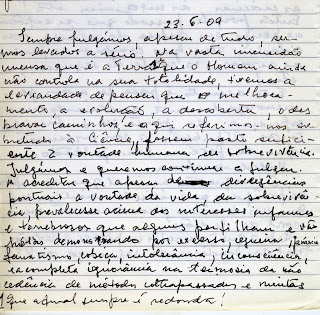 23-6-09
Sempre julgámos, apesar de tudo, ser-
mos levados a sério. Na vasta imensidão
imensa que é a Terra que o Homem ainda
não controla na sua totalidade, tivemos a
leviandade de pensar que o melhora-
mento, a evolução, a descoberta, o des
bravar caminhos, e aqui referimo-nos so
bretudo à Ciência, fossem pasto sufici-
ente à vontade humana de sobrevivência.
Julgamos e queremos continuar a julgar
e acreditar que apesar divergências
pontuais a vontade da vida, da sobrevivên-
cia, prevalecesse acima dos interesses infames
e tenebrosos que alguns partilham e vão
demonstrando por excesso, cegueira,
fanatismo, cobiça, intolerância, inconsciência,
e completa ignorância na teimosia da não
cedência de métodos ultrapassados e mentes
que afinal sempre é redonda!